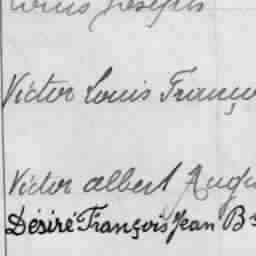 Louis Joseph
Victor Louis Franço
Victor albert Augu
Désiré François Jean Bte